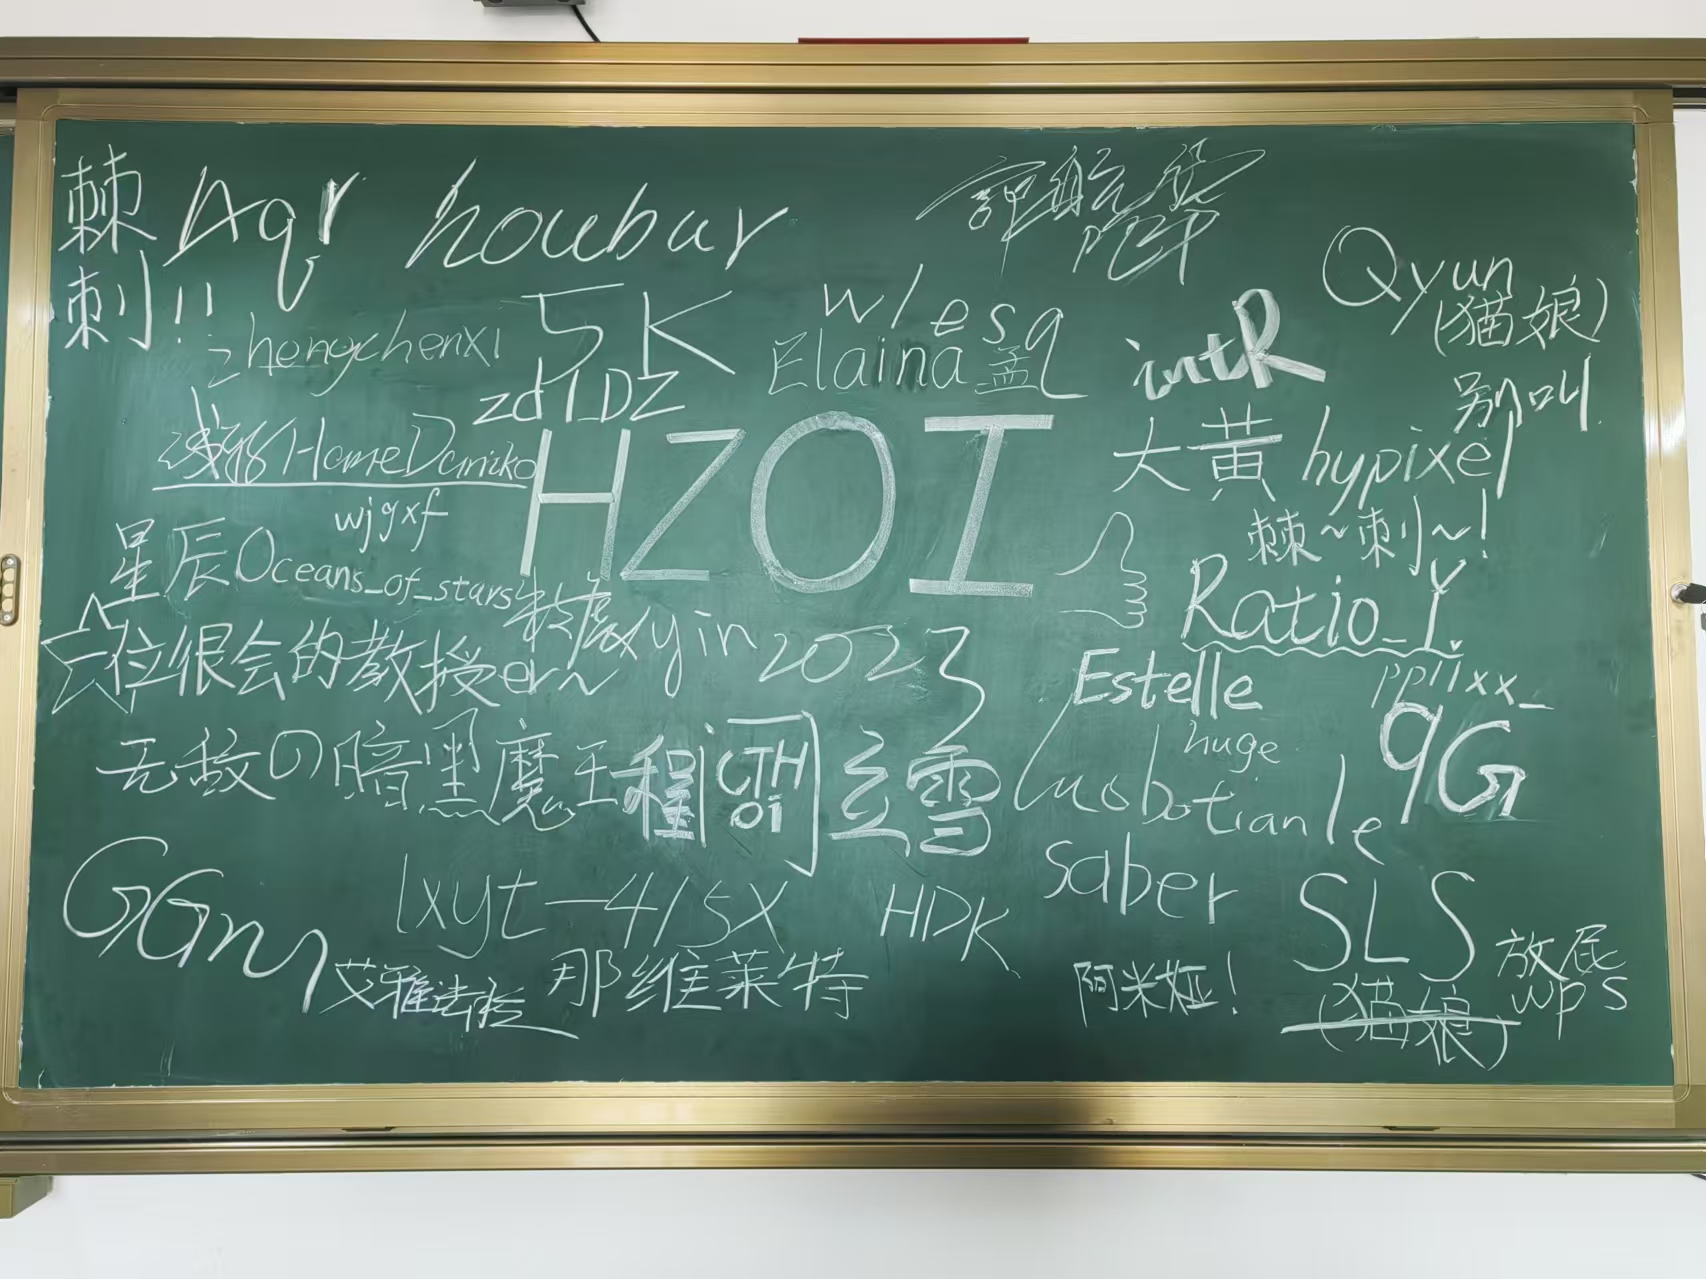 棘 Aqr houbur
刺!!
Qyun
(猫娘)
别叫
zhengchenxi 5K wlesq
Elaina 孟 intR
zdLDZ
HomeDaniko HZOI 大黄 hypixel
wjgxf
棘~刺~!
星辰Oceans_of_stars
Ratio_Y.
yin 2023
六位很会的教授er~
Estelle
ppllxx_
huge
9G
无敌の暗黑魔王 程 CTH
oi 立雪
luobotianle
saber
GGrn lxyt-415X HDK
SLS
艾雅法拉 那维莱特 阿米娅!
(猫娘)
放屁
wps